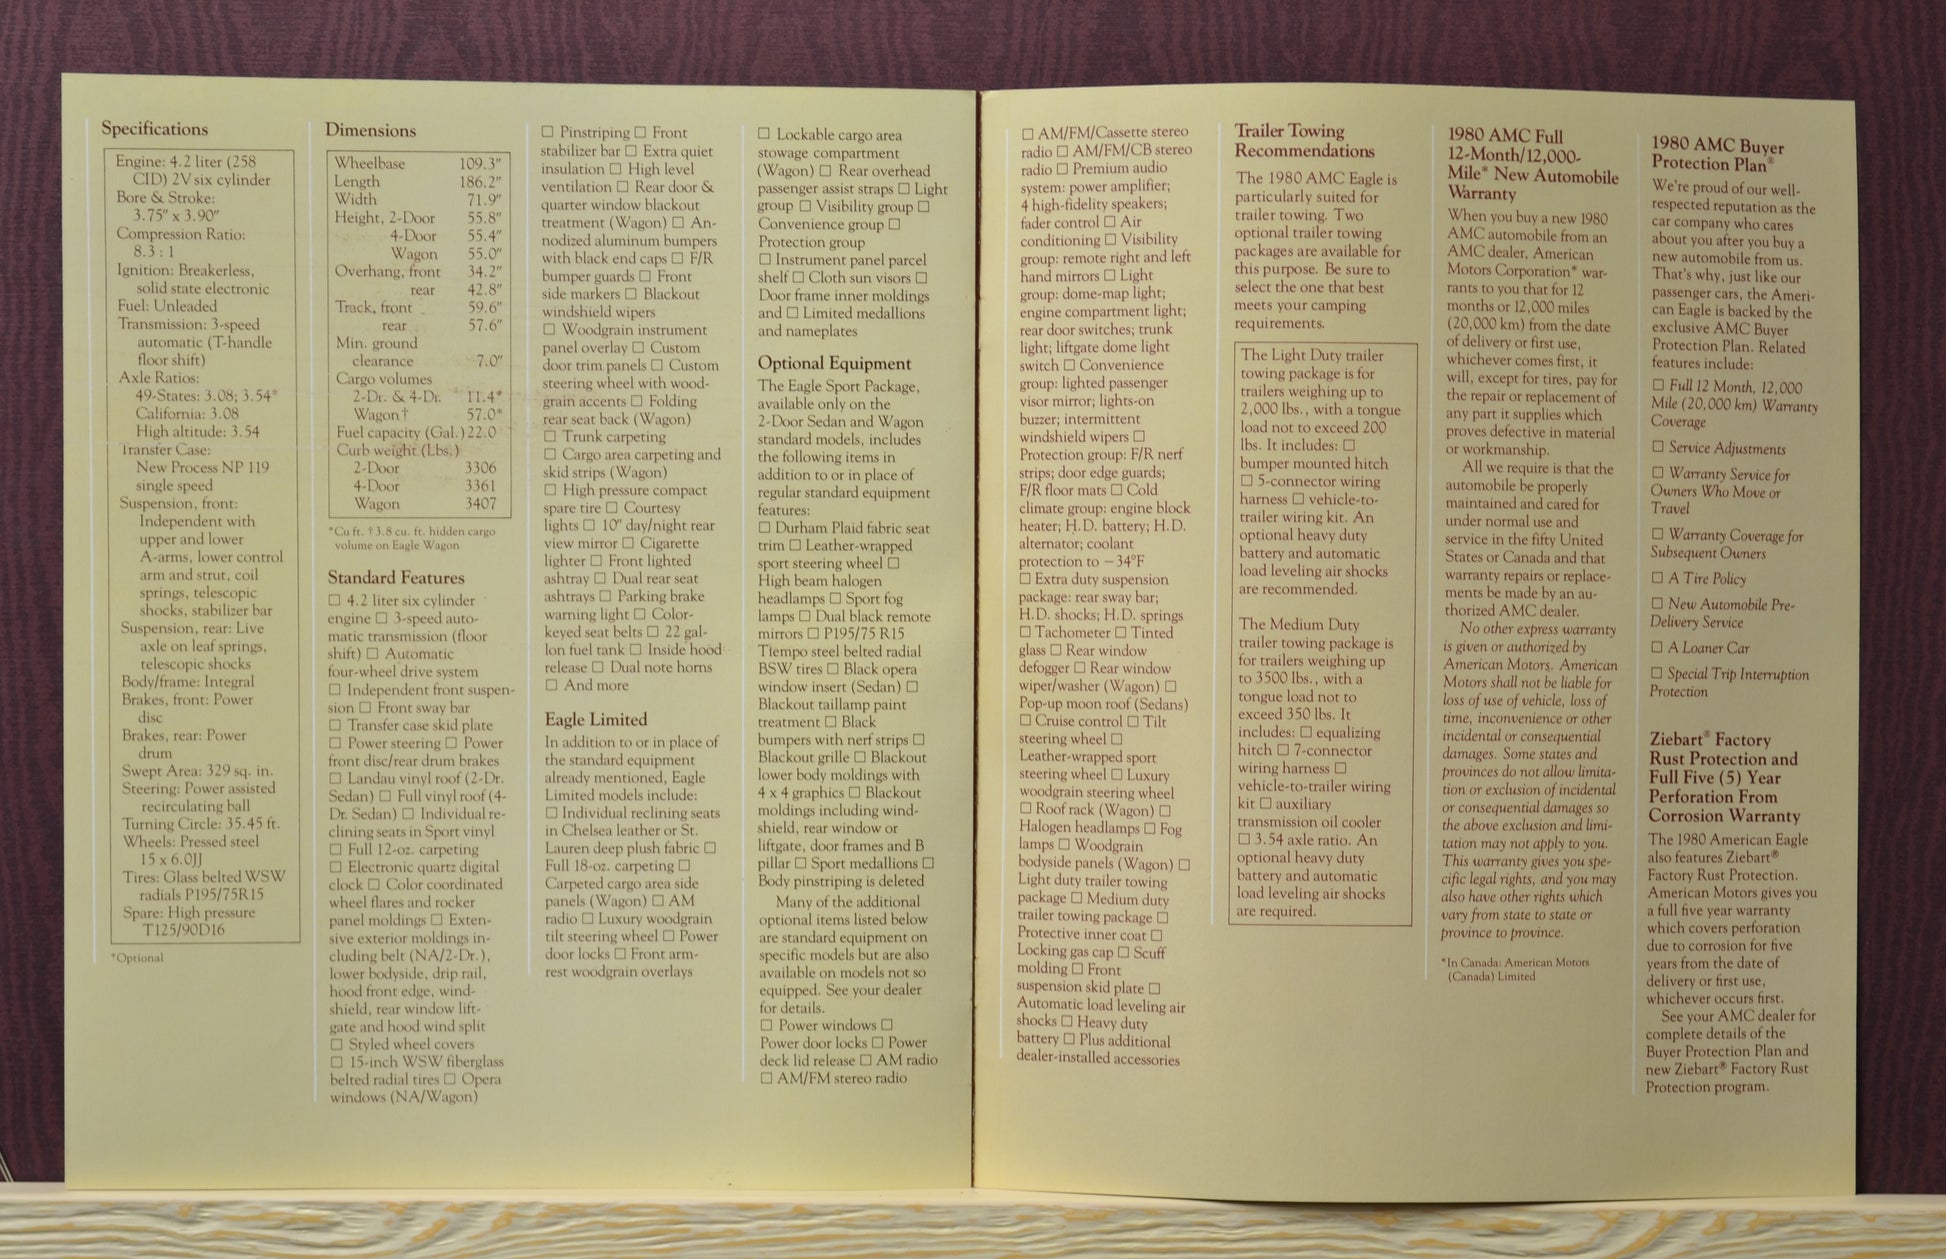 Specifications
Engine: 4.2 liter (258
CID) 2V six cylinder
Bore & Stroke:
3.75" x 3.90"
Compression Ratio:
8.3 : 1
Ignition: Breakerless,
solid state electronic
Fuel: Unleaded
Transmission: 3-speed
automatic (T-handle
floor shift)
Axle Ratios:
49-States: 3.08; 3.54*
California: 3.08
High altitude: 3.54
Transfer Case:
New Process NP 119
single speed
Suspension, front:
Independent with
upper and lower
A-arms, lower control
arm and strut, coil
springs, telescopic
shocks, stabilizer bar
Suspension, rear: Live
axle on leaf springs,
telescopic shocks
Body/frame: Integral
Brakes, front: Power
disc
Brakes, rear: Power
drum
Swept Area: 329 sq. in.
Steering: Power assisted
recirculating ball
Turning Circle: 35.45 ft.
Wheels: Pressed steel
15 x 6.0JJ
Tires: Glass belted WSW
radials P195/75R15
Spare: High pressure
T125/90D16
*Optional
Dimensions
Wheelbase 109.3"
Length 186.2"
Width 71.9"
Height, 2-Door 55.8"
4-Door 55.4"
Wagon 55.0"
Overhang, front 34.2"
rear 42.8"
Track, front 59.6"
rear 57.6"
Min. ground
clearance 7.0"
Cargo volumes
2-Dr. & 4-Dr. 11.4*
Wagon† 57.0*
Fuel capacity (Gal.) 22.0
Curb weight (Lbs.)
2-Door 3306
4-Door 3361
Wagon 3407
*Cu ft. †3.8 cu. ft. hidden cargo
volume on Eagle Wagon
Standard Features
☐ 4.2 liter six cylinder
engine ☐ 3-speed auto-
matic transmission (floor
shift) ☐ Automatic
four-wheel drive system
☐ Independent front suspen-
sion ☐ Front sway bar
☐ Transfer case skid plate
☐ Power steering ☐ Power
front disc/rear drum brakes
☐ Landau vinyl roof (2-Dr.
Sedan) ☐ Full vinyl roof (4-
Dr. Sedan) ☐ Individual re-
clining seats in Sport vinyl
☐ Full 12-oz. carpeting
☐ Electronic quartz digital
clock ☐ Color coordinated
wheel flares and rocker
panel moldings ☐ Exten-
sive exterior moldings in-
cluding belt (NA/2-Dr.),
lower bodyside, drip rail,
hood front edge, wind-
shield, rear window lift-
gate and hood wind split
☐ Styled wheel covers
☐ 15-inch WSW fiberglass
belted radial tires ☐ Opera
windows (NA/Wagon)
☐ Pinstriping ☐ Front
stabilizer bar ☐ Extra quiet
insulation ☐ High level
ventilation ☐ Rear door &
quarter window blackout
treatment (Wagon) ☐ An-
nodized aluminum bumpers
with black end caps ☐ F/R
bumper guards ☐ Front
side markers ☐ Blackout
windshield wipers
☐ Woodgrain instrument
panel overlay ☐ Custom
door trim panels ☐ Custom
steering wheel with wood-
grain accents ☐ Folding
rear seat back (Wagon)
☐ Trunk carpeting
☐ Cargo area carpeting and
skid strips (Wagon)
☐ High pressure compact
spare tire ☐ Courtesy
lights ☐ 10" day/night rear
view mirror ☐ Cigarette
lighter ☐ Front lighted
ashtray ☐ Dual rear seat
ashtrays ☐ Parking brake
warning light ☐ Color-
keyed seat belts ☐ 22 gal-
lon fuel tank ☐ Inside hood
release ☐ Dual note horns
☐ And more
Eagle Limited
In addition to or in place of
the standard equipment
already mentioned, Eagle
Limited models include:
☐ Individual reclining seats
in Chelsea leather or St.
Lauren deep plush fabric ☐
Full 18-oz. carpeting ☐
Carpeted cargo area side
panels (Wagon) ☐ AM
radio ☐ Luxury woodgrain
tilt steering wheel ☐ Power
door locks ☐ Front arm-
rest woodgrain overlays
☐ Lockable cargo area
stowage compartment
(Wagon) ☐ Rear overhead
passenger assist straps ☐ Light
group ☐ Visibility group ☐
Convenience group ☐
Protection group
☐ Instrument panel parcel
shelf ☐ Cloth sun visors ☐
Door frame inner moldings
and ☐ Limited medallions
and nameplates
Optional Equipment
The Eagle Sport Package,
available only on the
2-Door Sedan and Wagon
standard models, includes
the following items in
addition to or in place of
regular standard equipment
features:
☐ Durham Plaid fabric seat
trim ☐ Leather-wrapped
sport steering wheel ☐
High beam halogen
headlamps ☐ Sport fog
lamps ☐ Dual black remote
mirrors ☐ P195/75 R15
Tiempo steel belted radial
BSW tires ☐ Black opera
window insert (Sedan) ☐
Blackout taillamp paint
treatment ☐ Black
bumpers with nerf strips ☐
Blackout grille ☐ Blackout
lower body moldings with
4 x 4 graphics ☐ Blackout
moldings including wind-
shield, rear window or
liftgate, door frames and B
pillar ☐ Sport medallions ☐
Body pinstriping is deleted
Many of the additional
optional items listed below
are standard equipment on
specific models but are also
available on models not so
equipped. See your dealer
for details.
☐ Power windows ☐
Power door locks ☐ Power
deck lid release ☐ AM radio
☐ AM/FM stereo radio
☐ AM/FM/Cassette stereo
radio ☐ AM/FM/CB stereo
radio ☐ Premium audio
system: power amplifier;
4 high-fidelity speakers;
fader control ☐ Air
conditioning ☐ Visibility
group: remote right and left
hand mirrors ☐ Light
group: dome-map light;
engine compartment light;
rear door switches; trunk
light; liftgate dome light
switch ☐ Convenience
group: lighted passenger
visor mirror; lights-on
buzzer; intermittent
windshield wipers ☐
Protection group: F/R nerf
strips; door edge guards;
F/R floor mats ☐ Cold
climate group: engine block
heater; H.D. battery; H.D.
alternator; coolant
protection to −34°F
☐ Extra duty suspension
package: rear sway bar;
H.D. shocks; H.D. springs
☐ Tachometer ☐ Tinted
glass ☐ Rear window
defogger ☐ Rear window
wiper/washer (Wagon) ☐
Pop-up moon roof (Sedans)
☐ Cruise control ☐ Tilt
steering wheel ☐
Leather-wrapped sport
steering wheel ☐ Luxury
woodgrain steering wheel
☐ Roof rack (Wagon) ☐
Halogen headlamps ☐ Fog
lamps ☐ Woodgrain
bodyside panels (Wagon) ☐
Light duty trailer towing
package ☐ Medium duty
trailer towing package ☐
Protective inner coat ☐
Locking gas cap ☐ Scuff
molding ☐ Front
suspension skid plate ☐
Automatic load leveling air
shocks ☐ Heavy duty
battery ☐ Plus additional
dealer-installed accessories
Trailer Towing
Recommendations
The 1980 AMC Eagle is
particularly suited for
trailer towing. Two
optional trailer towing
packages are available for
this purpose. Be sure to
select the one that best
meets your camping
requirements.
The Light Duty trailer
towing package is for
trailers weighing up to
2,000 lbs., with a tongue
load not to exceed 200
lbs. It includes: ☐
bumper mounted hitch
☐ 5-connector wiring
harness ☐ vehicle-to-
trailer wiring kit. An
optional heavy duty
battery and automatic
load leveling air shocks
are recommended.
The Medium Duty
trailer towing package is
for trailers weighing up
to 3500 lbs., with a
tongue load not to
exceed 350 lbs. It
includes: ☐ equalizing
hitch ☐ 7-connector
wiring harness ☐
vehicle-to-trailer wiring
kit ☐ auxiliary
transmission oil cooler
☐ 3.54 axle ratio. An
optional heavy duty
battery and automatic
load leveling air shocks
are required.
1980 AMC Full
12-Month/12,000-
Mile* New Automobile
Warranty
When you buy a new 1980
AMC automobile from an
AMC dealer, American
Motors Corporation* war-
rants to you that for 12
months or 12,000 miles
(20,000 km) from the date
of delivery or first use,
whichever comes first, it
will, except for tires, pay for
the repair or replacement of
any part it supplies which
proves defective in material
or workmanship.
All we require is that the
automobile be properly
maintained and cared for
under normal use and
service in the fifty United
States or Canada and that
warranty repairs or replace-
ments be made by an au-
thorized AMC dealer.
No other express warranty
is given or authorized by
American Motors. American
Motors shall not be liable for
loss of use of vehicle, loss of
time, inconvenience or other
incidental or consequential
damages. Some states and
provinces do not allow limita-
tion or exclusion of incidental
or consequential damages so
the above exclusion and limi-
tation may not apply to you.
This warranty gives you spe-
cific legal rights, and you may
also have other rights which
vary from state to state or
province to province.
*In Canada: American Motors
(Canada) Limited
1980 AMC Buyer
Protection Plan®
We're proud of our well-
respected reputation as the
car company who cares
about you after you buy a
new automobile from us.
That's why, just like our
passenger cars, the Ameri-
can Eagle is backed by the
exclusive AMC Buyer
Protection Plan. Related
features include:
☐ Full 12 Month, 12,000
Mile (20,000 km) Warranty
Coverage
☐ Service Adjustments
☐ Warranty Service for
Owners Who Move or
Travel
☐ Warranty Coverage for
Subsequent Owners
☐ A Tire Policy
☐ New Automobile Pre-
Delivery Service
☐ A Loaner Car
☐ Special Trip Interruption
Protection
Ziebart® Factory
Rust Protection and
Full Five (5) Year
Perforation From
Corrosion Warranty
The 1980 American Eagle
also features Ziebart®
Factory Rust Protection.
American Motors gives you
a full five year warranty
which covers perforation
due to corrosion for five
years from the date of
delivery or first use,
whichever occurs first.
See your AMC dealer for
complete details of the
Buyer Protection Plan and
new Ziebart® Factory Rust
Protection program.